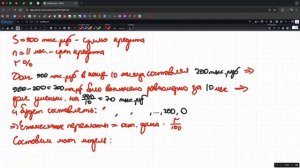 S=900 тыс.руб - сумма кредита
n=11 мес. - срок кредита
r %
Долг 900 тыс.руб в конце 10 месяца составляет 200 тыс.руб ⇒
900-200=700 тыс.руб было выплачено равномерно за 10 мес ⇒
долг уменьш. на 700/10 = 70 тыс.руб
и будет составлять: , , ..., 200, 0
⇒ Ежемесячные = ост. долга · r/100
Составим мат. модель: